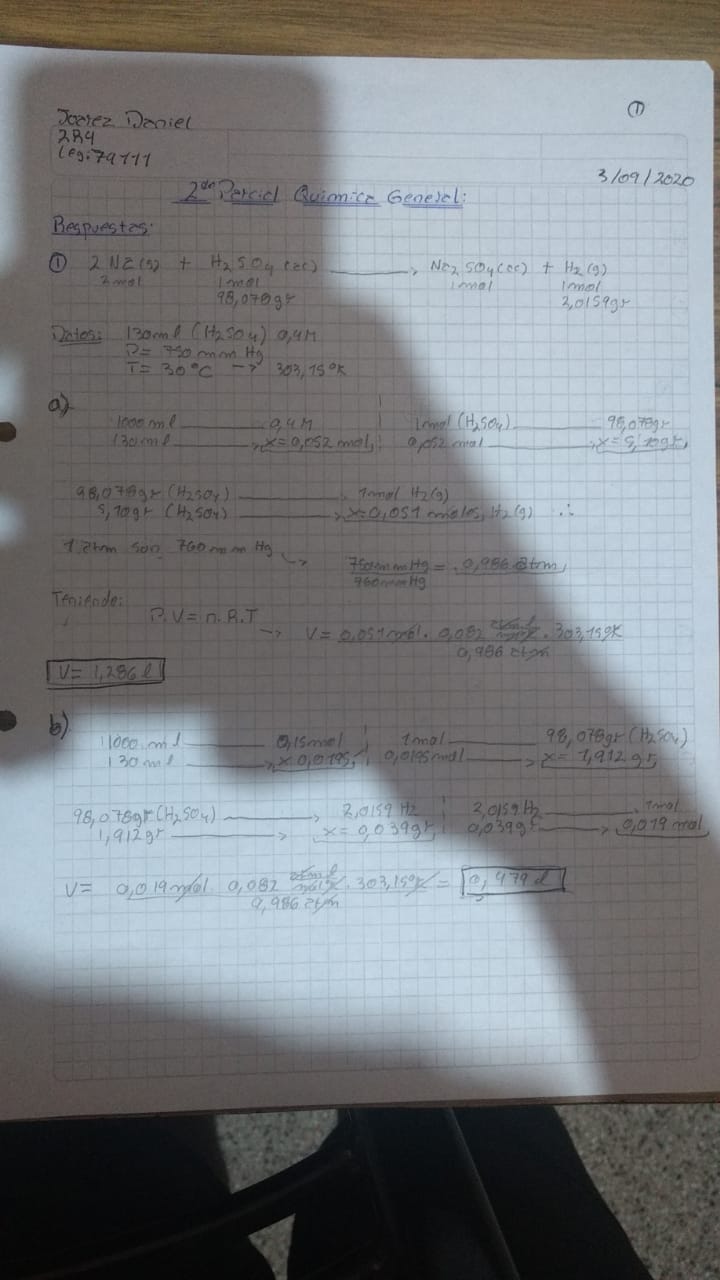 ①
Juarez Daniel
2R4
Leg: 79111
3/09/2020
2do Parcial Química General:
Respuestas:
① 2 Na(s) + H2SO4(ac) → Na2SO4(ac) + H2(g)
2mol 1mol 1mol 1mol
98,078gr 2,0159gr
Datos: 130ml (H2SO4) 0,4M
P= 750 mm Hg
T= 30°C → 303,15°K
a)
1000 ml 0,4M 1mol (H2SO4) 98,078gr
130ml → x=0,052 mol 0,052 mol → x=5,10gr
98,078gr (H2SO4) 1mol H2(g)
5,10gr (H2SO4) → x=0,051 moles, H2(g) ∴
1 atm son 760 mm Hg → 750mmHg/760mmHg = 0,986 atm
Teniendo:
P.V= n.R.T → V= 0,051 mol. 0,082 atm.l/mol.°K . 303,15°K
0,986 atm
V= 1,286 l
b)
1000 ml 0,15mol 1mol 98,078gr (H2SO4)
130 ml → x 0,0195 0,0195mol → x= 1,912 gr
98,078gr (H2SO4) → 2,0159 H2 2,0159 H2 1mol
1,912gr → x= 0,039gr 0,039gr → 0,019 mol
V= 0,019mol. 0,082 atm.l/mol.°K . 303,15°K = 0,479 l
0,986 atm